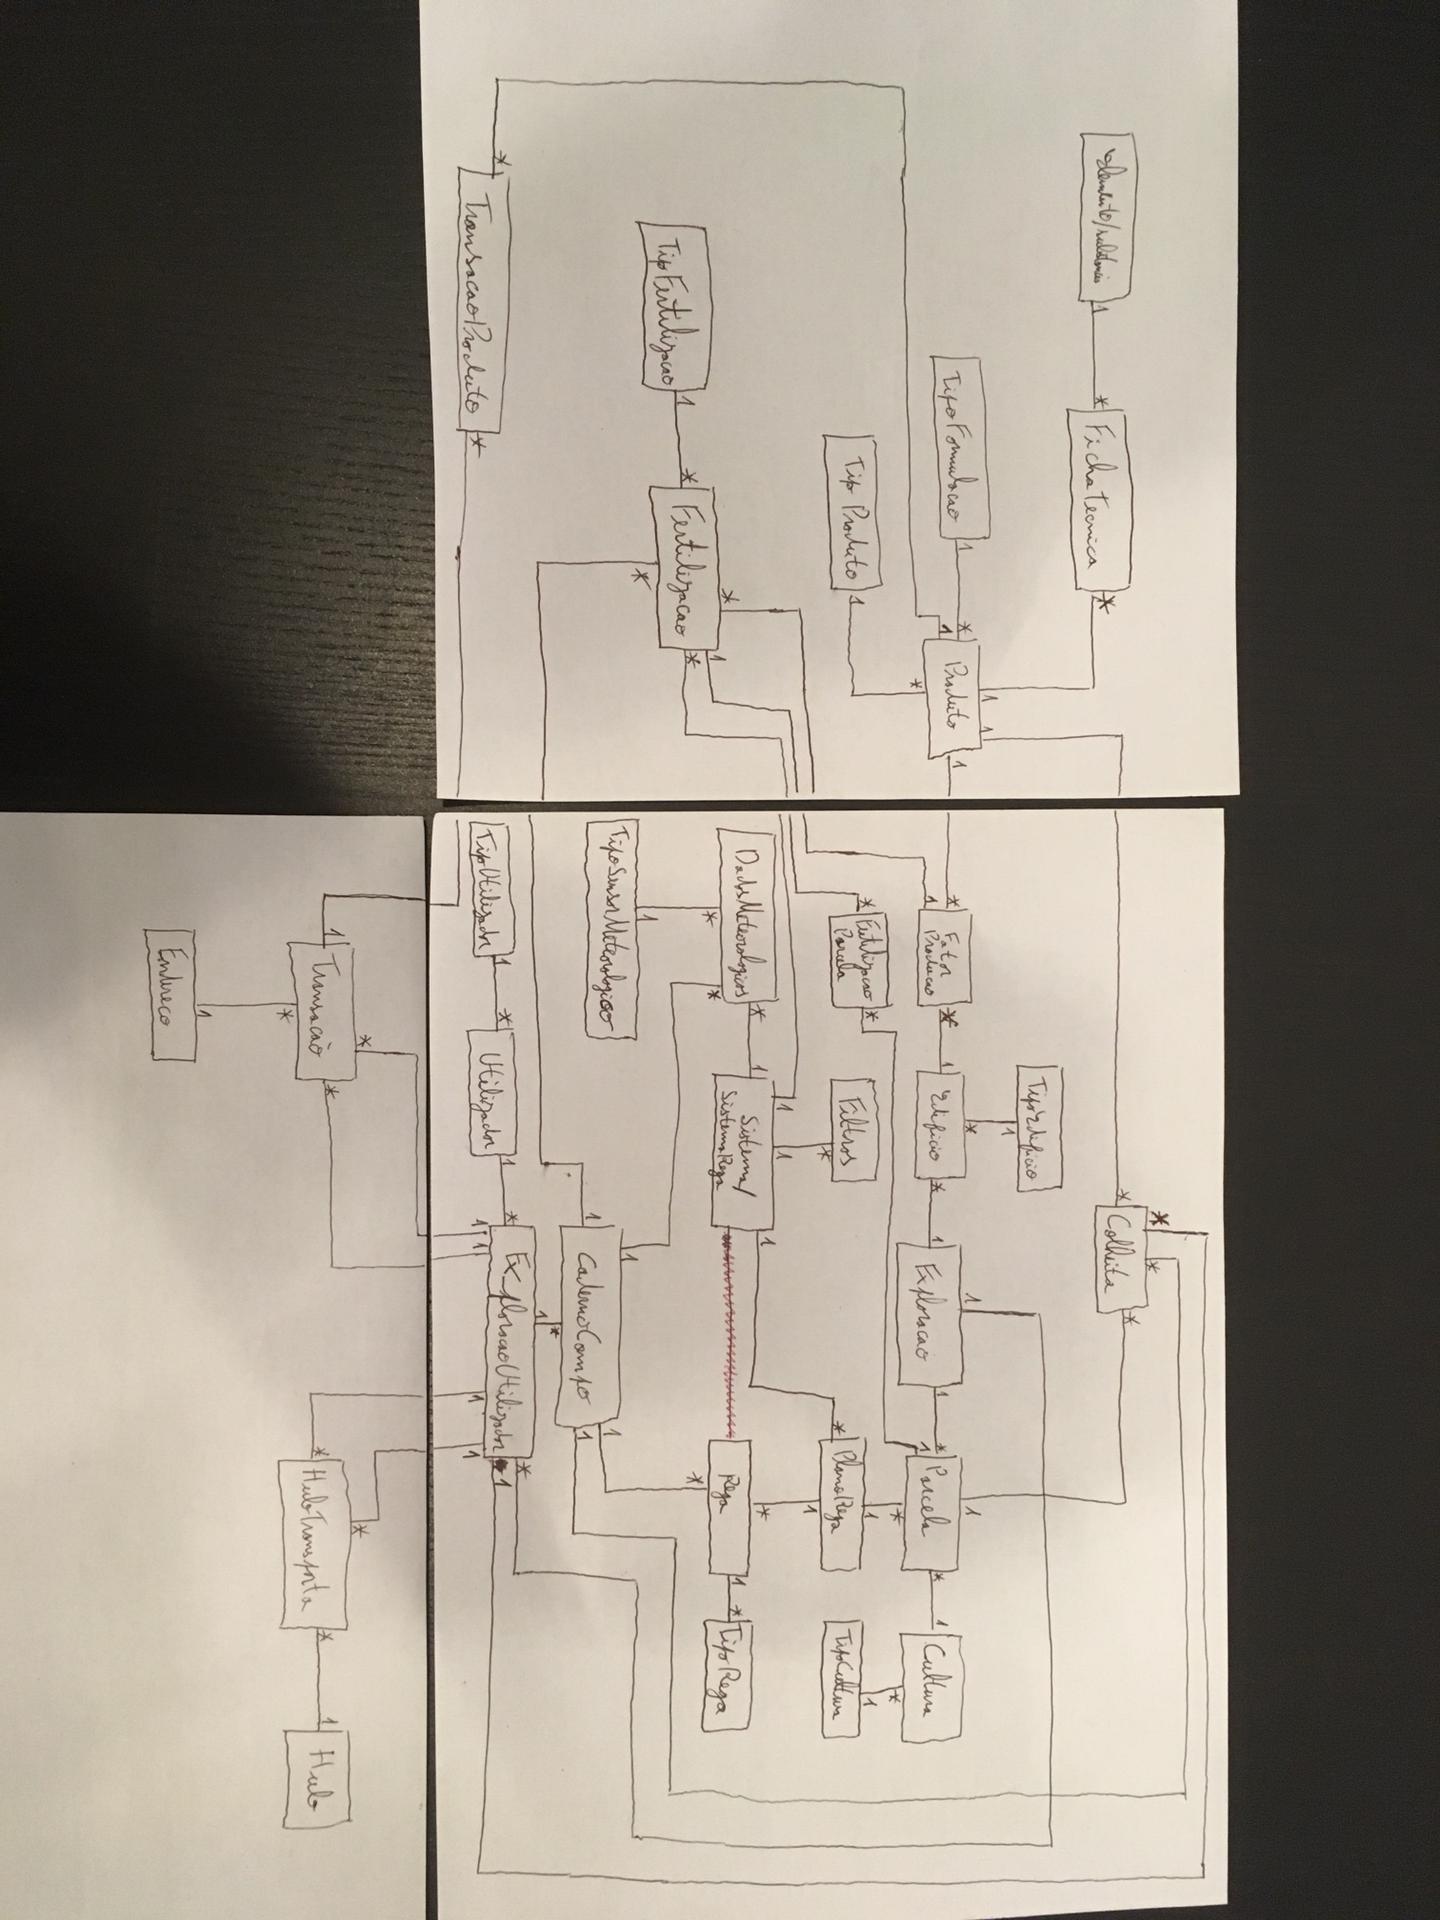 Elemento/substancia
1
*
FichaTecnica
*
TipoFormulacao
1
*
1
1
1
Produto
1
1
*
Tipo Produto
1
*
TipFertilizacao
1
*
Fertilizacao
1
*
*
*
TransacaoProduto
*
*
*
*
Colheita
*
TipoEdificio
1
*
*
1
Fator
Producao
*
1
Edificio
*
1
1
Exploracao
1
*
1
1
Parcela
*
1
Cultura
*
*
Fertilizacao
Parcela
*
Filtros
*
*
1
PlanoRega
*
1
1
TipoCultura
DadosMeteorologicos
*
1
1
1
Sistema/
SistemaRega
1
*
Rega
1
*
TipoRega
*
*
*
1
TipoSensorMeteorologico
1
1
CadernoCampo
1
1
*
1
TipoUtilizador
1
*
Utilizador
1
*
ExploracaoUtilizador
*
1
1
1
1
1
*
1
Transacao
*
*
*
*
HubTransporta
*
1
Hub
1
Endereco